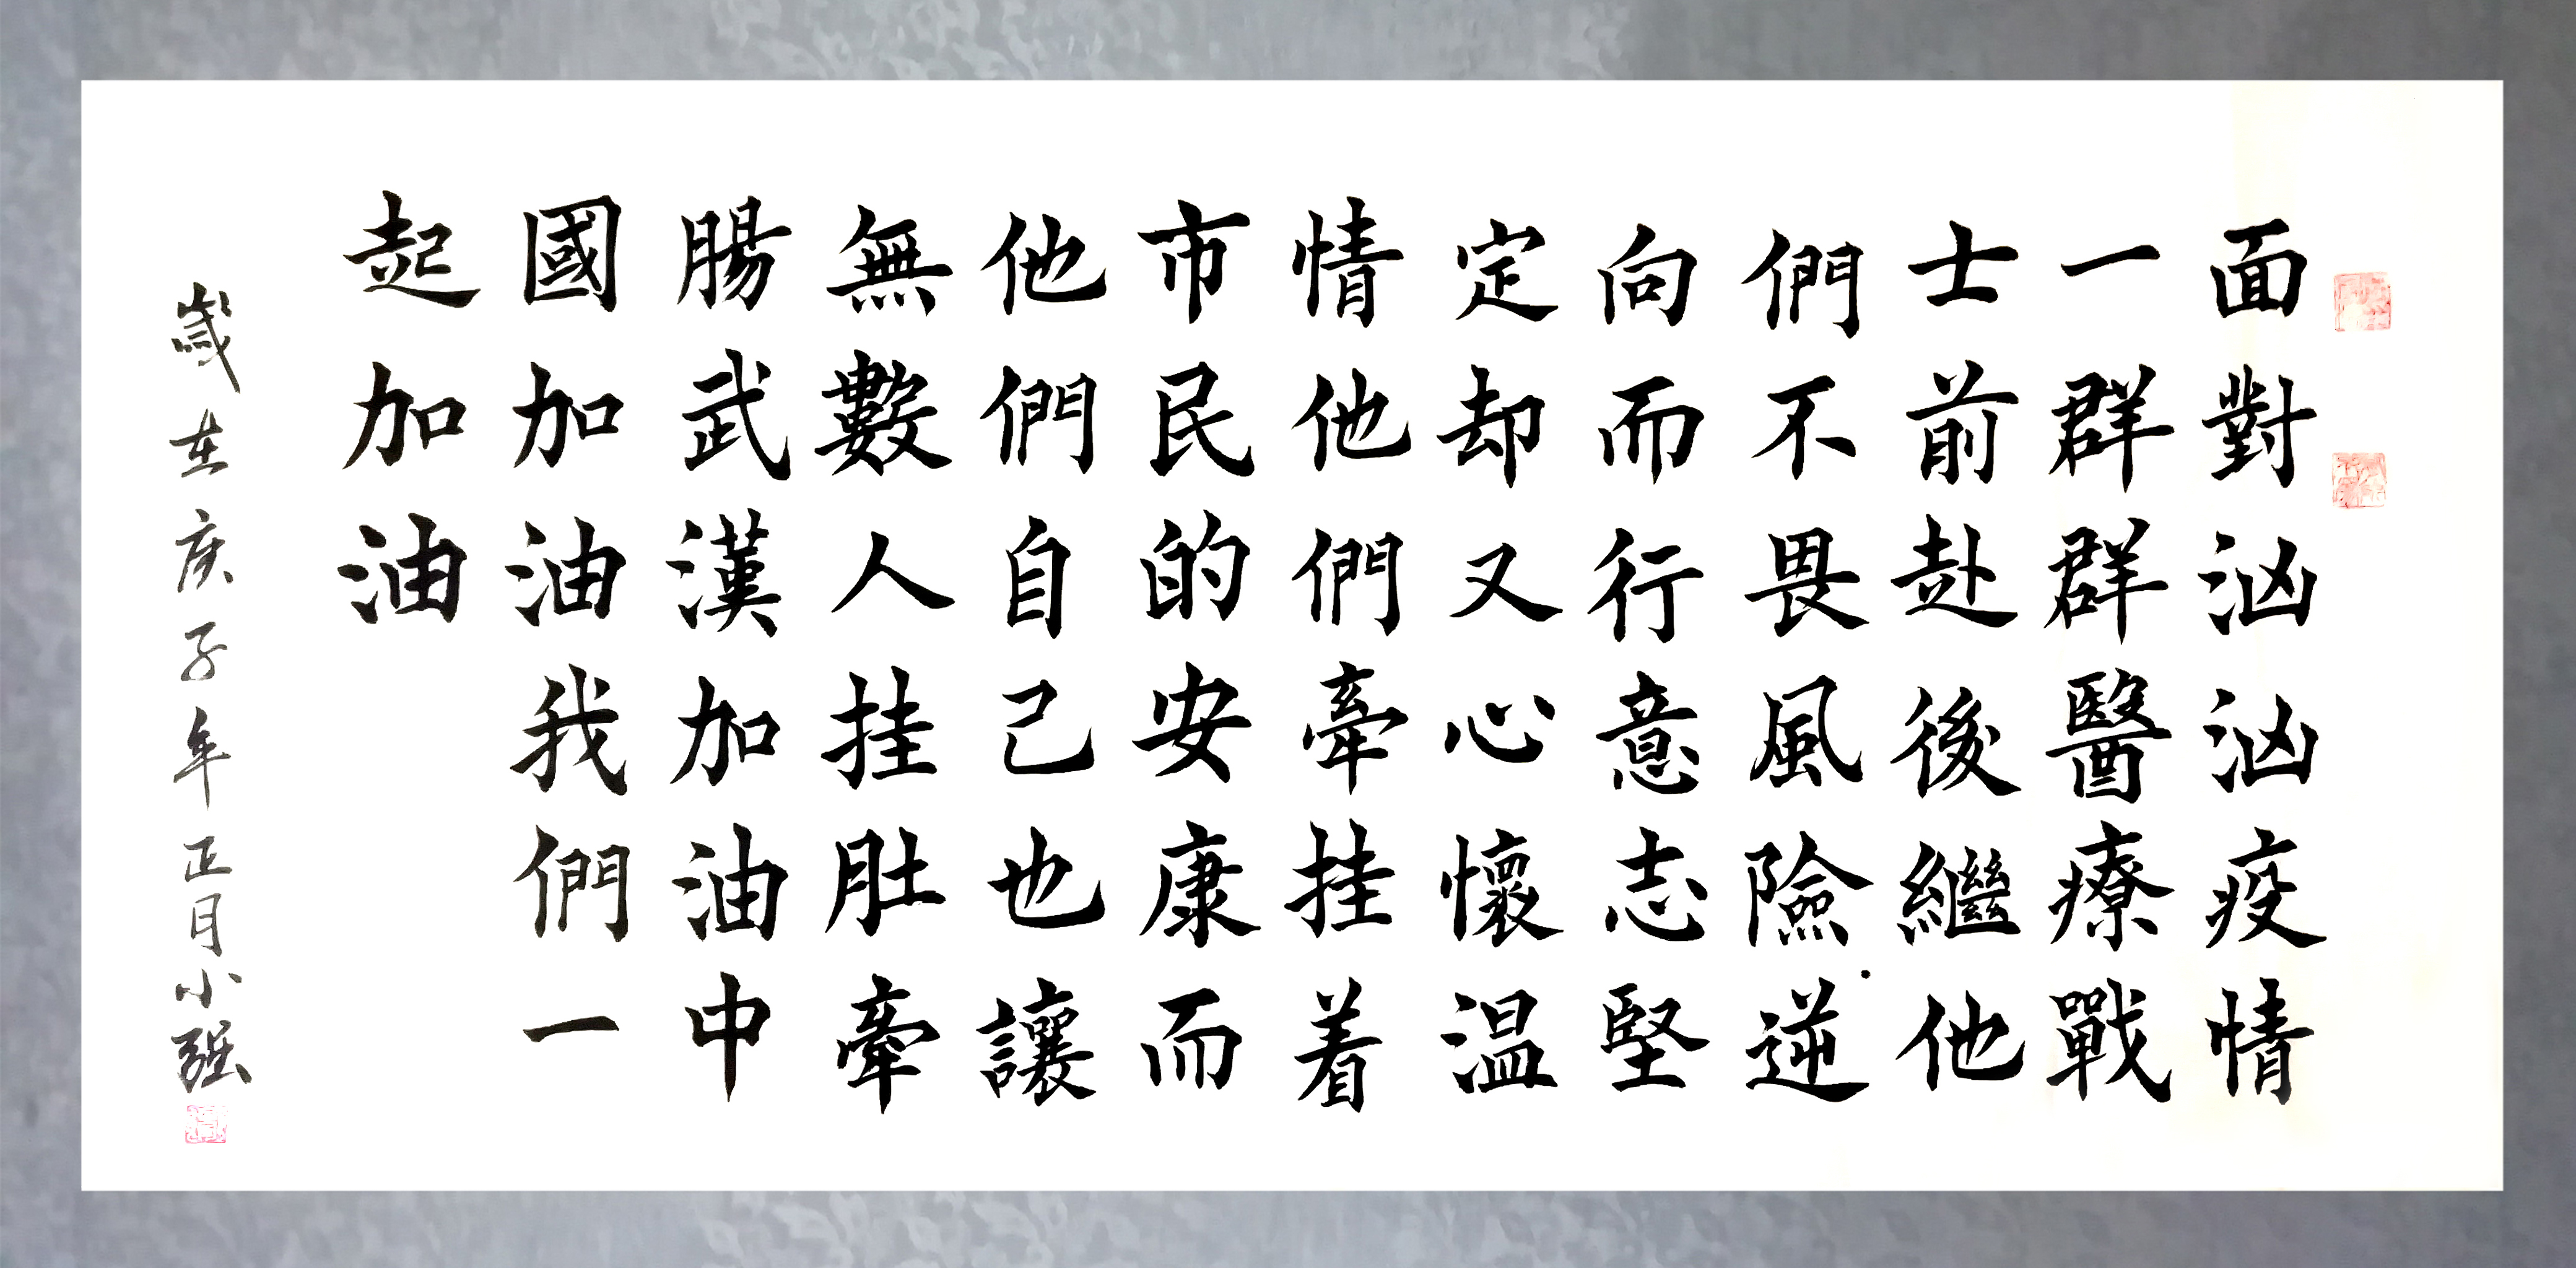 面對汹汹疫情
一群群醫療戰
士前赴後繼他
們不畏風險逆
向而行意志堅
定却又心懷温
情他們牽挂着
市民的安康而
他們自己也讓
無數人挂肚牽
腸武漢加油中
國加油我們一
起加油
歲在庚子年正月小强